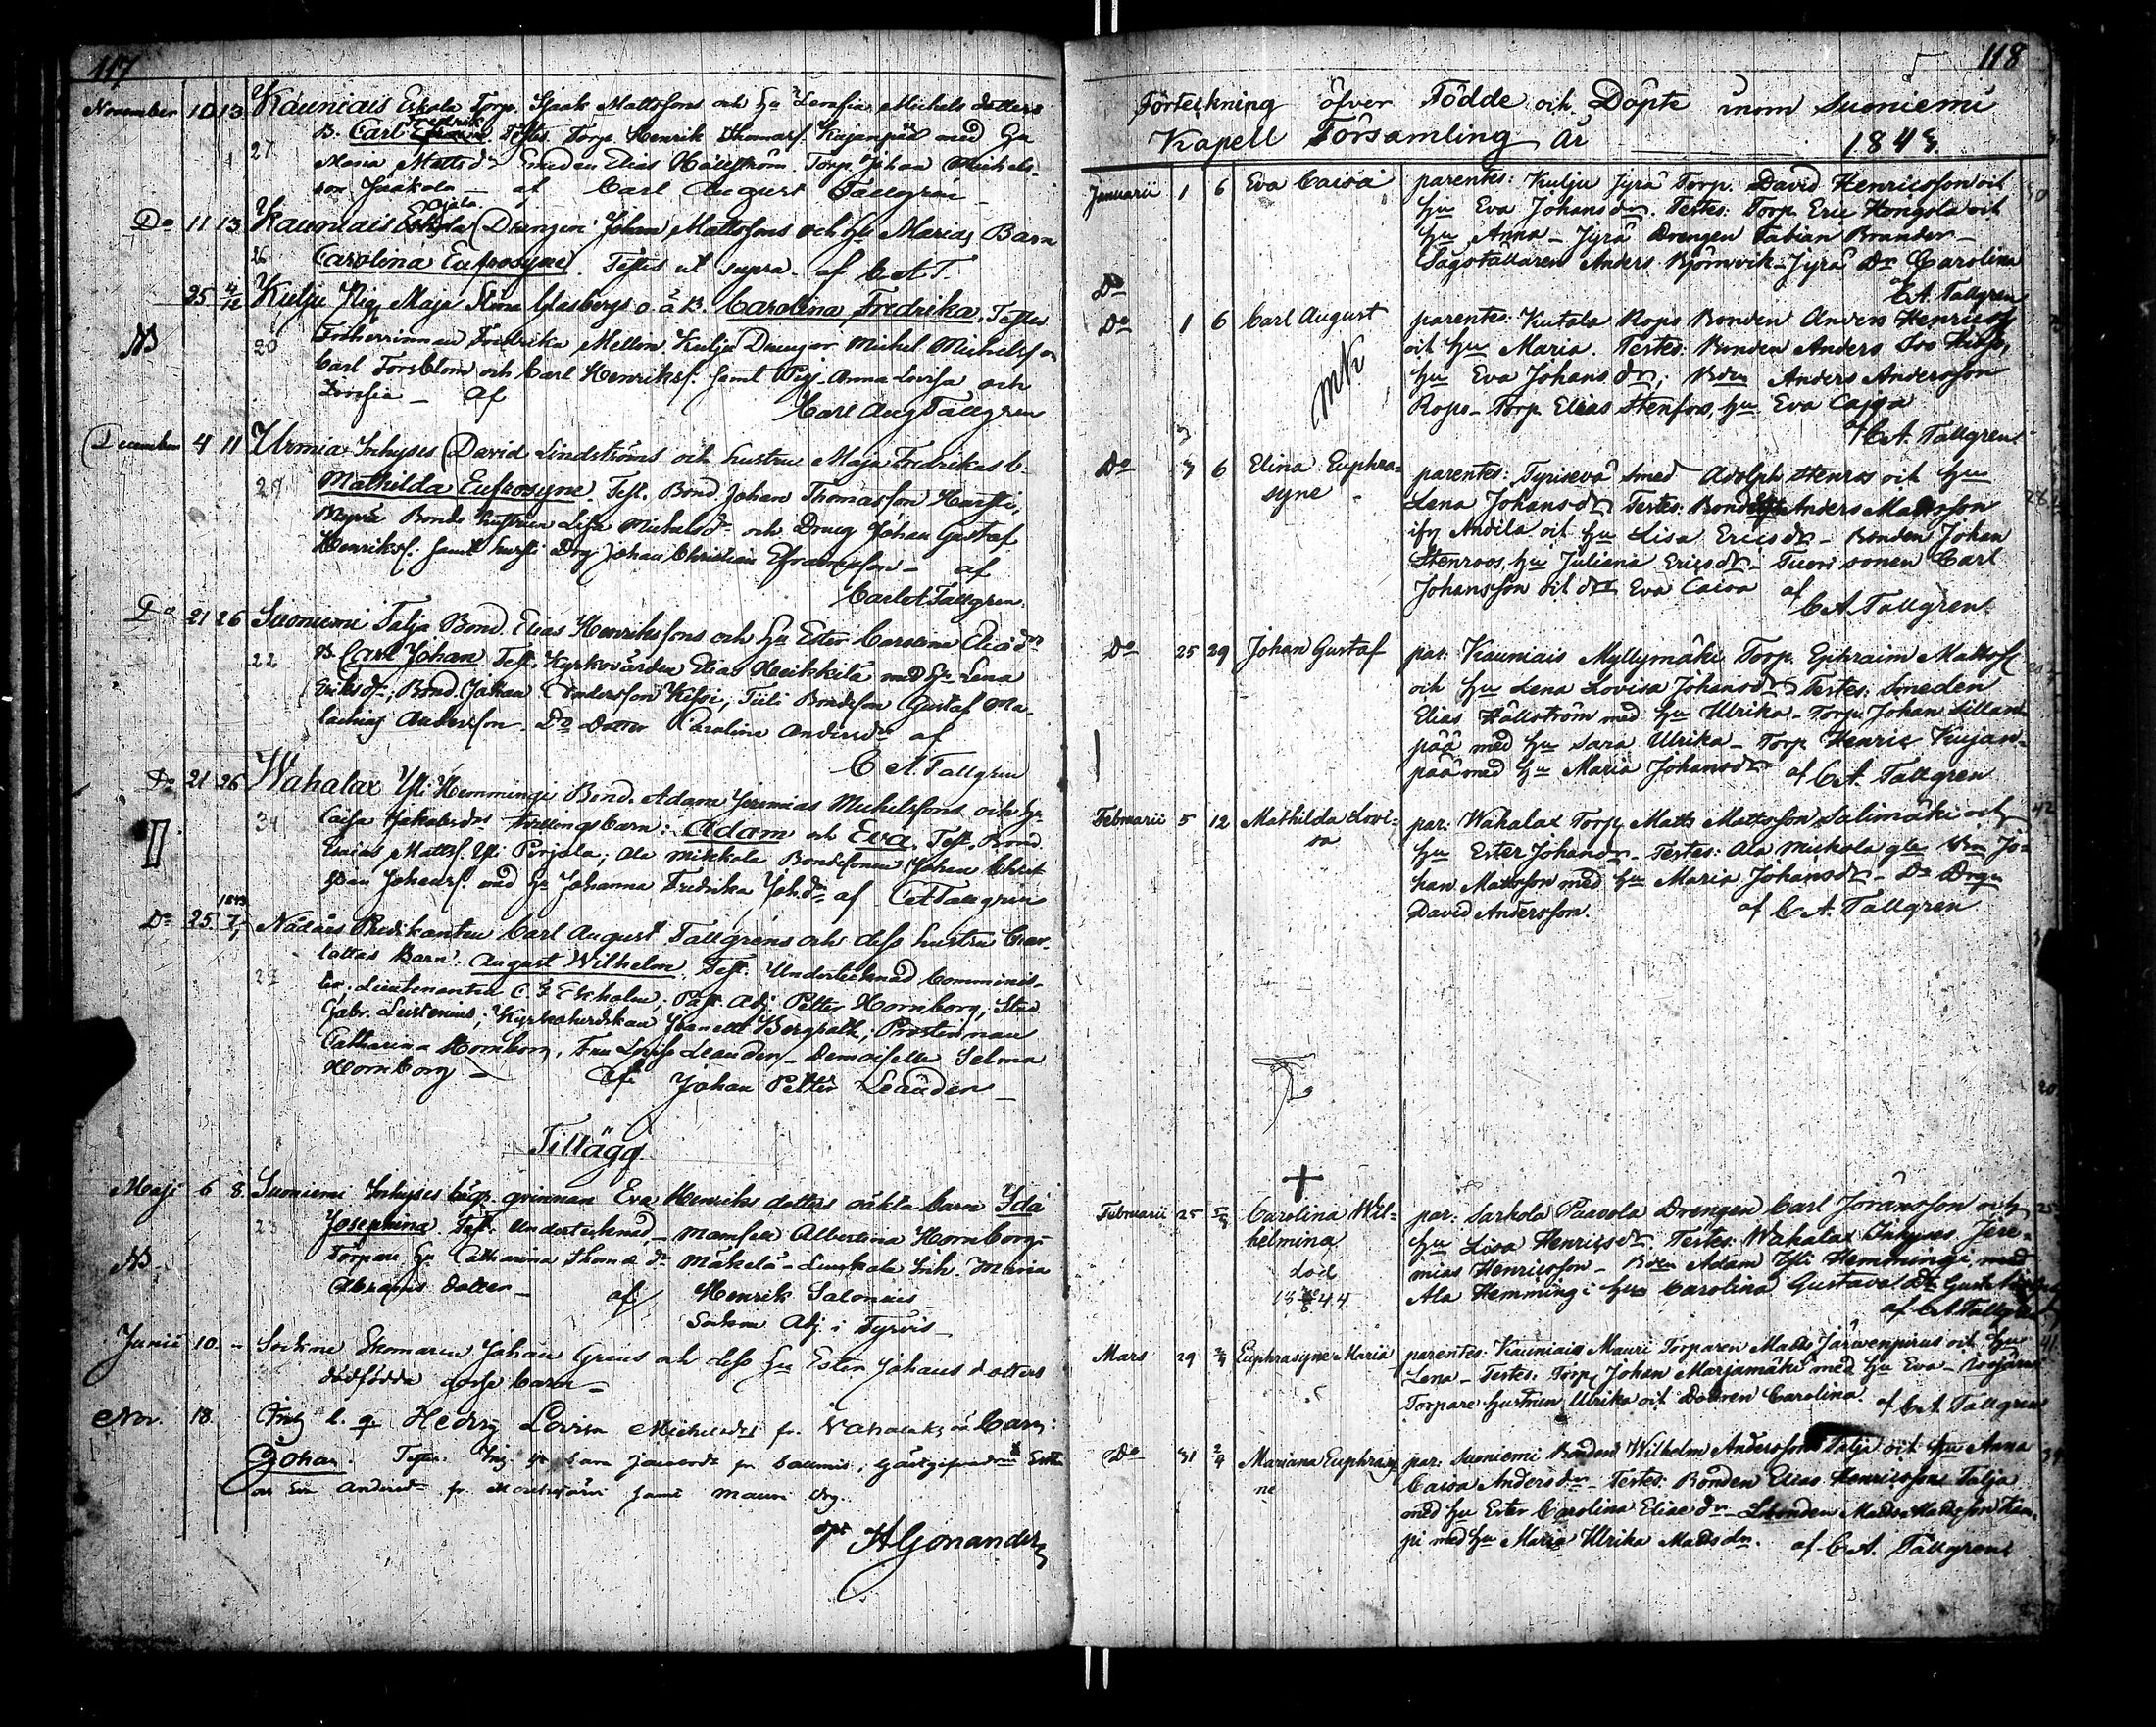 117
November 10 13 Kauniais Eskola Torp. Isaak Mattssons och Hu Serafia Michels dotters
B. Carl Fredrik Testes Torp Henrik Thomasf. Kujanpää med Hu
27 Maria Mattsdr Smeden Elias Hällström Torp. Johan Michels-
son Jaakola — af Carl August Tallgren
Do 11 13 Kauniais Ojala Drengen Johan Mattssons och Hu Marias Barn
26 Carolina Eufrosyne. Testes ut supra af C A T.
25 4/12 Kulju Pig. Maja Stina Glasbergs o. ä B. Carolina Fredrika. Testes
AB 20 Friherrinnan Fredrika Mellin. Kulju Drengar Michel Michelsson
Carl Forsblom och Carl Henriksf. samt Pig. Anna Lovisa och
Serafia — af Carl Aug Tallgren
December 4 11 Urmia Inhyses David Lindströms och hustru Maja Fredrikas b.
29 Mathilda Eufrosyne. Test. Bond. Johan Thomasson Harsti,
Bonds hustrun Lisa Michelsdr och Dreng Johan Gustaf
Henriksf. samt Drg Johan Christian Efraimsson — af
Carl A Tallgren.
Do 21 26 Suoniemi Talja Bond. Elias Henrikssons och Hu Ester Carolina Eliædr
22 B. Carl Johan. Test. Kyrkovärden Elias Heikkilä med Hu Lena
Eriksdr, Bond. Johan Andersson Kitsi, Tiili Bondeson Gustaf Ma-
lachias Andersson. Do Dotter Karolina Andersdr af
C A. Tallgren
Do 21 26 Wahalax Yli Hemmingi Bond. Adam Jeremias Michelssons och Hu
34 Caisa Jakobsdrs tvillingsbarn: Adam och Eva. Test. Bond.
Esaias Mattsf. Yli Pirjola; Ala Mikkola Bondesonen Johan Christ
ian Johansf. med Hu Johanna Fredrika Joh.dr af C A Tallgren
1843
Do 25. 7/1 Nådårs Predikanten Carl August Tallgrens och dess hustru Char-
lottas Barn: August Wilhelm. Test. Undertecknad Comminis-
28 ter. Lieutenanten C. G Ekholm; Past. Adj Petter Hornborg, Stud
Gabr. Leistenius; Kyrkoherdskan Jeanette Bergroth; Prostinnan
Catharina Hornborg, Fru Lovisa Leander — Demoiselle Selma
Hornborg — af Johan Petter Leander —
Tillägg.
Maji 6 8. Suoniemi Inhyses läg. qvinnan Eva Henriks dotters oäkta barn Ida
23 Josephina. Test. Undertecknad, — Mamsell Albertina Hornborg —
AB Torpare Hu Catharina Thomædr Mäkelä — Inh. Maria
Abrams dotter — af Henrik Salonius
Sockne Adj. i Tyrvis —
Junii 10. " Sockne Skomaren Johan Greus och dess Hu Ester Johans dotters
dödfödda gosse barn —
Nov. 18. Pig l. q Hedvig Lovisa Michelsdr fr. Wahalaks oä Barn:
Johan. Testes.
H Gonander
118
Förteckning öfver Födde och Döpte inom Suoniemi
Kapell Församling År 1843.
Januarii 1 6 Eva Caisa parentes: Kulju Jyrä Torp. David Henricsson och
hu Eva Johansdr. Testes: Torp. Eric Hongola och
hu Anna — Jyrä Drengen Fabian Brander —
Sågställaren Anders Björnvik — Jyrä Dr Carolina
C A. Tallgren
Do
Do 1 6 Carl August parentes: Kutala Rops Bonden Anders Henricsf
och hu Maria. Testes: Bonden Anders
hu Eva Johansdr; Bden Anders Andersson
Rops — Torp. Elias Stenfors, hu Eva Cajsa
af C A. Tallgren
MK
Do 3 6 Elina Euphro- parentes: Tyrisevä Smed Adolph Stenros och hu
syne Lena Johansdr Testes: Bonden Anders Mattsson
Andila och hu Lisa Ericsdr — Bonden Johan
Stenroos, hu Juliana Ericsdr — Tuori sonen Carl
Johansson och dr Eva Caisa af
C A. Tallgren
Do 25 29 Johan Gustaf par: Kauniais Myllymäki Torp. Ephraim Mattsf
och hu Lena Lovisa Johansdr Testes: Smeden
Elias Hällström med hu Ulrika — Torp. Johan Sillan-
pää med hu Sara Ulrika — Torp Henric Kujan-
pää med hu Maria Johansdr af C A. Tallgren
Februarii 5 12 Mathilda Lovi- par: Wahalax Torp. Matts Mattsson Salimäki och 42
sa hu Ester Johansdr — Testes: Ala Mickola gla Bn Jo-
han Mattsson med hu Maria Johansdr — Do Drgn
David Andersson. af C A. Tallgren
Februarii 25 5/3 Carolina Wil- par: Sarkola Paavola Drengen Carl Jöransson och 25
helmina hu Lisa Henricsdr. Testes: Wahalax Inhyses Jere-
död mias Henricsson — Bden Adam Yli Hemmingi med
Ala Hemmingi hu Carolina Gustava
af C A. Tallgren
Mars 29 2/4 Euphrosyne Maria parentes: Kauniais Mauri Torparen Matts Järwenpirus och hu 41.
Lena — Testes: Torp. Johan Marjamäki med hu Eva —
Torpare hustrun Ulrika och Dottren Carolina. af C A. Tallgren
Do 31 2/4 Mariana Euphrosy- par: Suoniemi Bonden Wilhelm Andersson Talja och hu Anna
ne Caisa Andersdr — Testes: Bonden Elias Henricsson Talja
med hu Ester Carolina Eliædr — Bonden Matts Mattsson Kam-
pi med hu Maria Ulrika Mattsdr. af C A. Tallgren